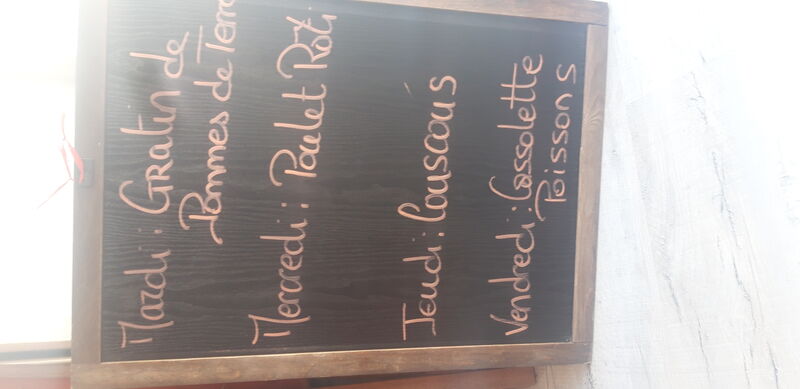 Mardi : Gratin de
Pommes de Terre
Mercredi : Poulet Rôti
Jeudi : Couscous
Vendredi : Cassolette
Poissons